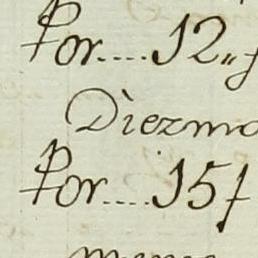 Por.....12„f
Diezmo
Por.....15f